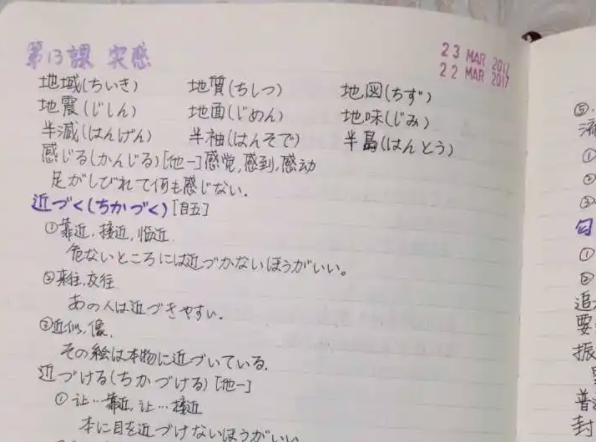 第13課 実感
23 MAR 2017
22 MAR 2017
地域(ちいき) 地質(ちしつ) 地図(ちず)
地震(じしん) 地面(じめん) 地味(じみ)
半減(はんげん) 半袖(はんそで) 半島(はんとう)
感じる(かんじる)[他一]感觉,感到,感动
足がしびれて何も感じない.
近づく(ちかづく)[自五]
①靠近,接近,临近
危ないところには近づかないほうがいい。
②来往,交往
あの人は近づきやすい.
③近似,像.
その絵は本物に近づいている.
近づける(ちかづける)[他一]
①让…靠近,让…接近
本に目を近づけないほうがいい
⑤.
①
②
③
匂
①
②
追
要
振
普
封